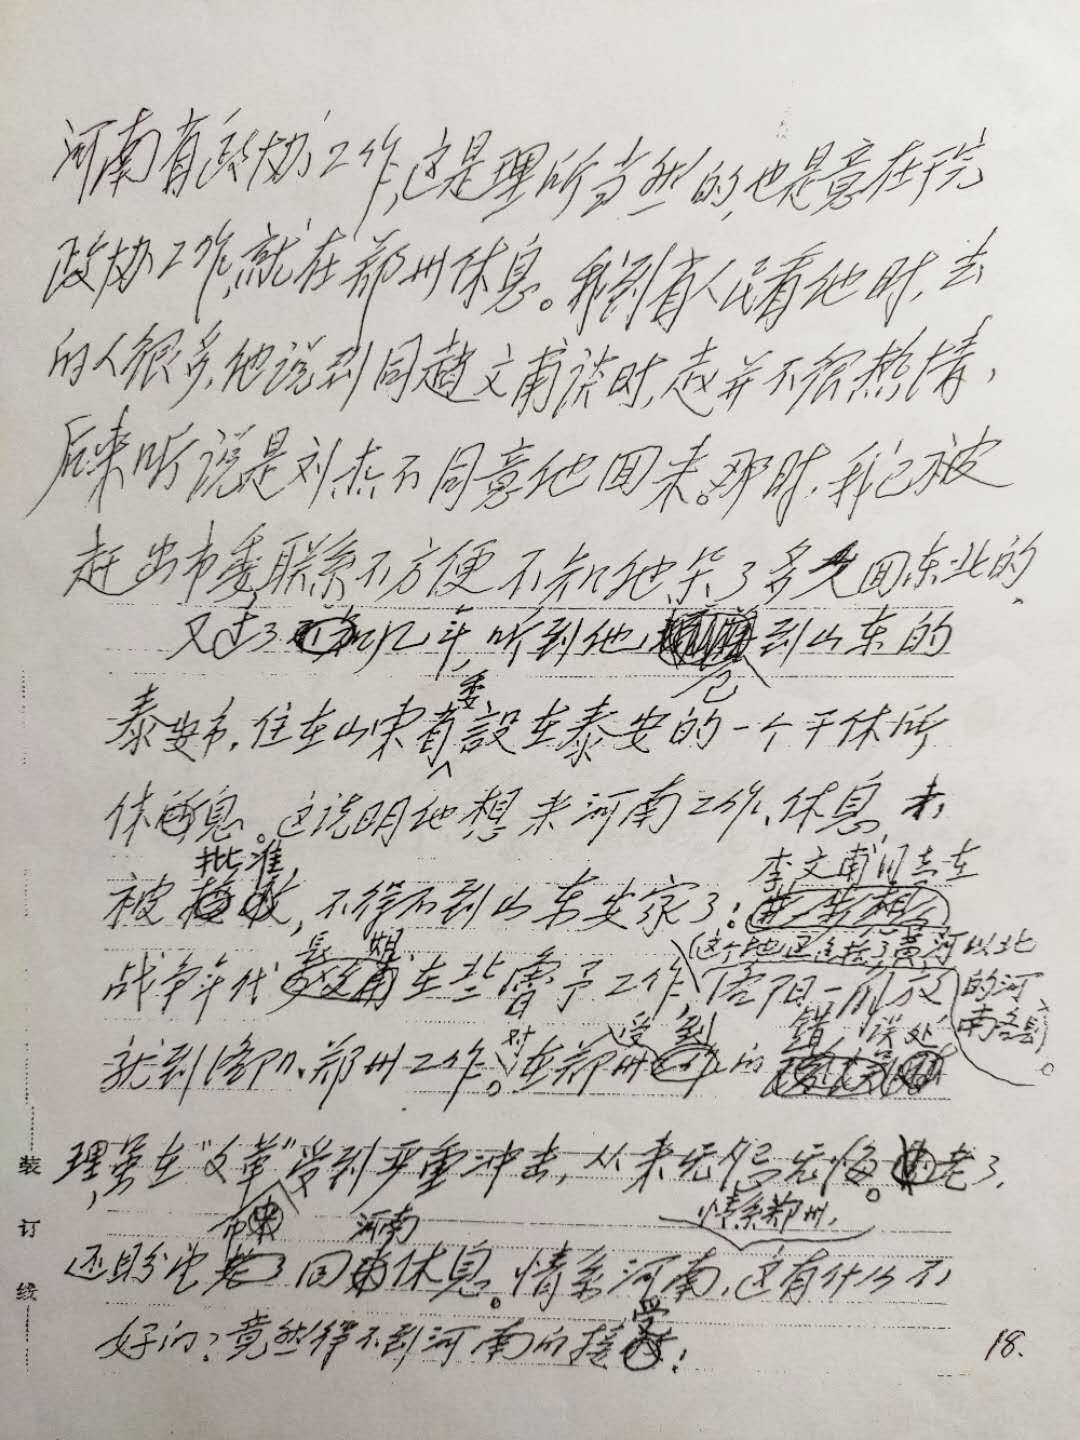 河南省政协工作,这是理所当然的,也是意在干完
政协工作,就在郑州休息。我到省人民看他时,去
的人很多,他说到同赵文甫谈时,赵并不很热情,
后来听说是刘杰不同意他回来。那时,我已被
赶出市委,联系不方便,不知他呆了多久回东北的。
又过了几年,听到他已到山东的
泰安市,住在山东省委設在泰安的一个干休所
休息。这说明他想来河南工作、休息,未
被批准,不得不到山东安家了!李文甫同志在
战争年代长期在冀鲁予工作,(这个地区包括了黄河以北
的河南各县)。洛阳一解放
就到洛阳、郑州工作。对在郑州受到的错误处
理,虽在"文革"受到严重冲击,从来无怨无悔。老了,
情系郑州,
还盼望回河南休息。情系河南,这有什么不
好的?竟然得不到河南的接受!
18.
装
订
线